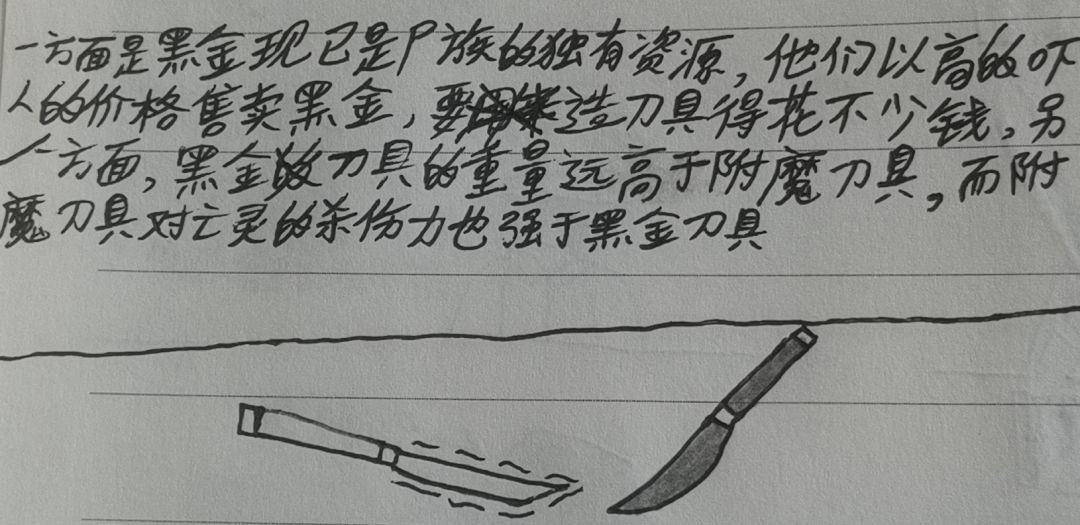 一方面是黑金现已是尸族的独有资源，他们以高的吓
人的价格售卖黑金，要造刀具得花不少钱。另
一方面，黑金的刀具的重量远高于附魔刀具，而附
魔刀具对亡灵的杀伤力也强于黑金刀具